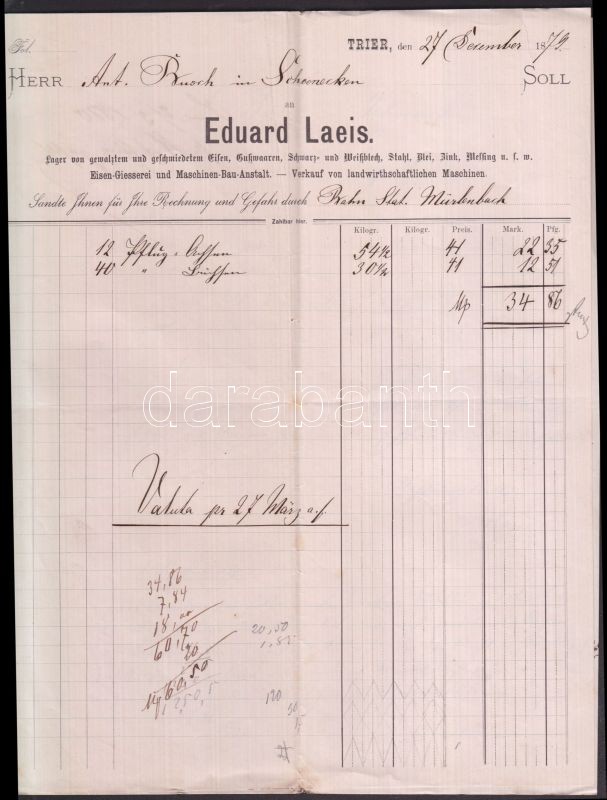 Fol.
TRIER, den 27 Dezember 1879.
HERR Ant. Knoch in Schoenecken SOLL
an
Eduard Laeis.
Lager von gewalztem und geschmiedetem Eisen, Gußwaaren, Schwarz- und Weißblech, Stahl, Blei, Zink, Messing u. s. w.
Eisen-Giesserei und Maschinen-Bau-Anstalt. — Verkauf von landwirthschaftlichen Maschinen.
Sandte Ihnen für Ihre Rechnung und Gefahr durch Bahn Stat. Mürlenbach
Zahlbar hier.
Kilogr. Kilogr. Preis. Mark. Pfg.
12 Pflug-Achsen 54½ 41 22 35
40 " Büchsen 30½ 41 12 51
34 86
darabanth
Valuta pr 27 März a.f.
34,86
7,84
18,00
60,70
20
60,50
20,50
1,85
120
50
15